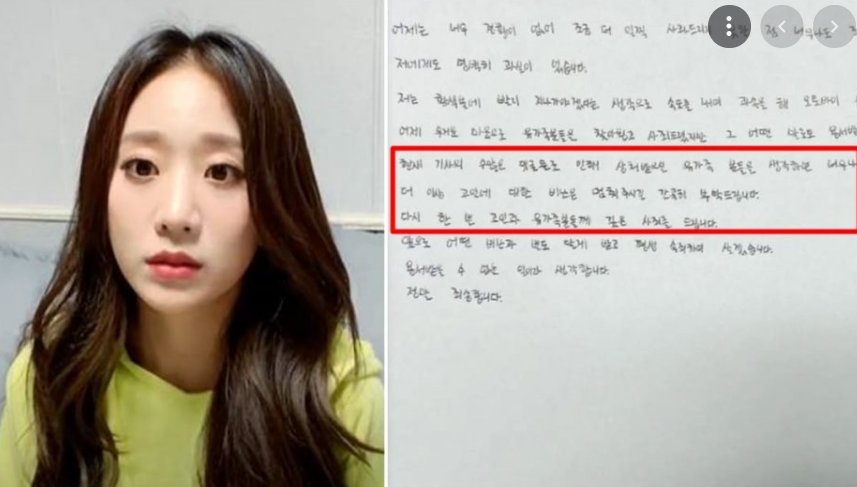 어제는 너무 경황이 없어 조금 더 일찍 사죄드리지 못한 점 너무나도
저에게도 명백히 과실이 있습니다.
저는 황색불에 빨리 지나가야겠다는 생각으로 속도를 내며 과속을 해 오토바이
어제 무거운 마음으로 유가족분들을 찾아뵙고 사죄드렸지만 그 어떤 말로도
현재 기사의 수많은 댓글들로 인해 상처받으실 유가족 분들을 생각하면 너무나
더 이상 고인에 대한 비난은 멈춰주시길 간곡히 부탁드립니다.
다시 한 번 고인과 유가족분들께 깊은 사죄를 드립니다.
앞으로 어떤 비난과 벌도 달게 받고 평생 속죄하며 살겠습니다.
용서받을 수 없는 일이라 생각합니다.
정말 죄송합니다.